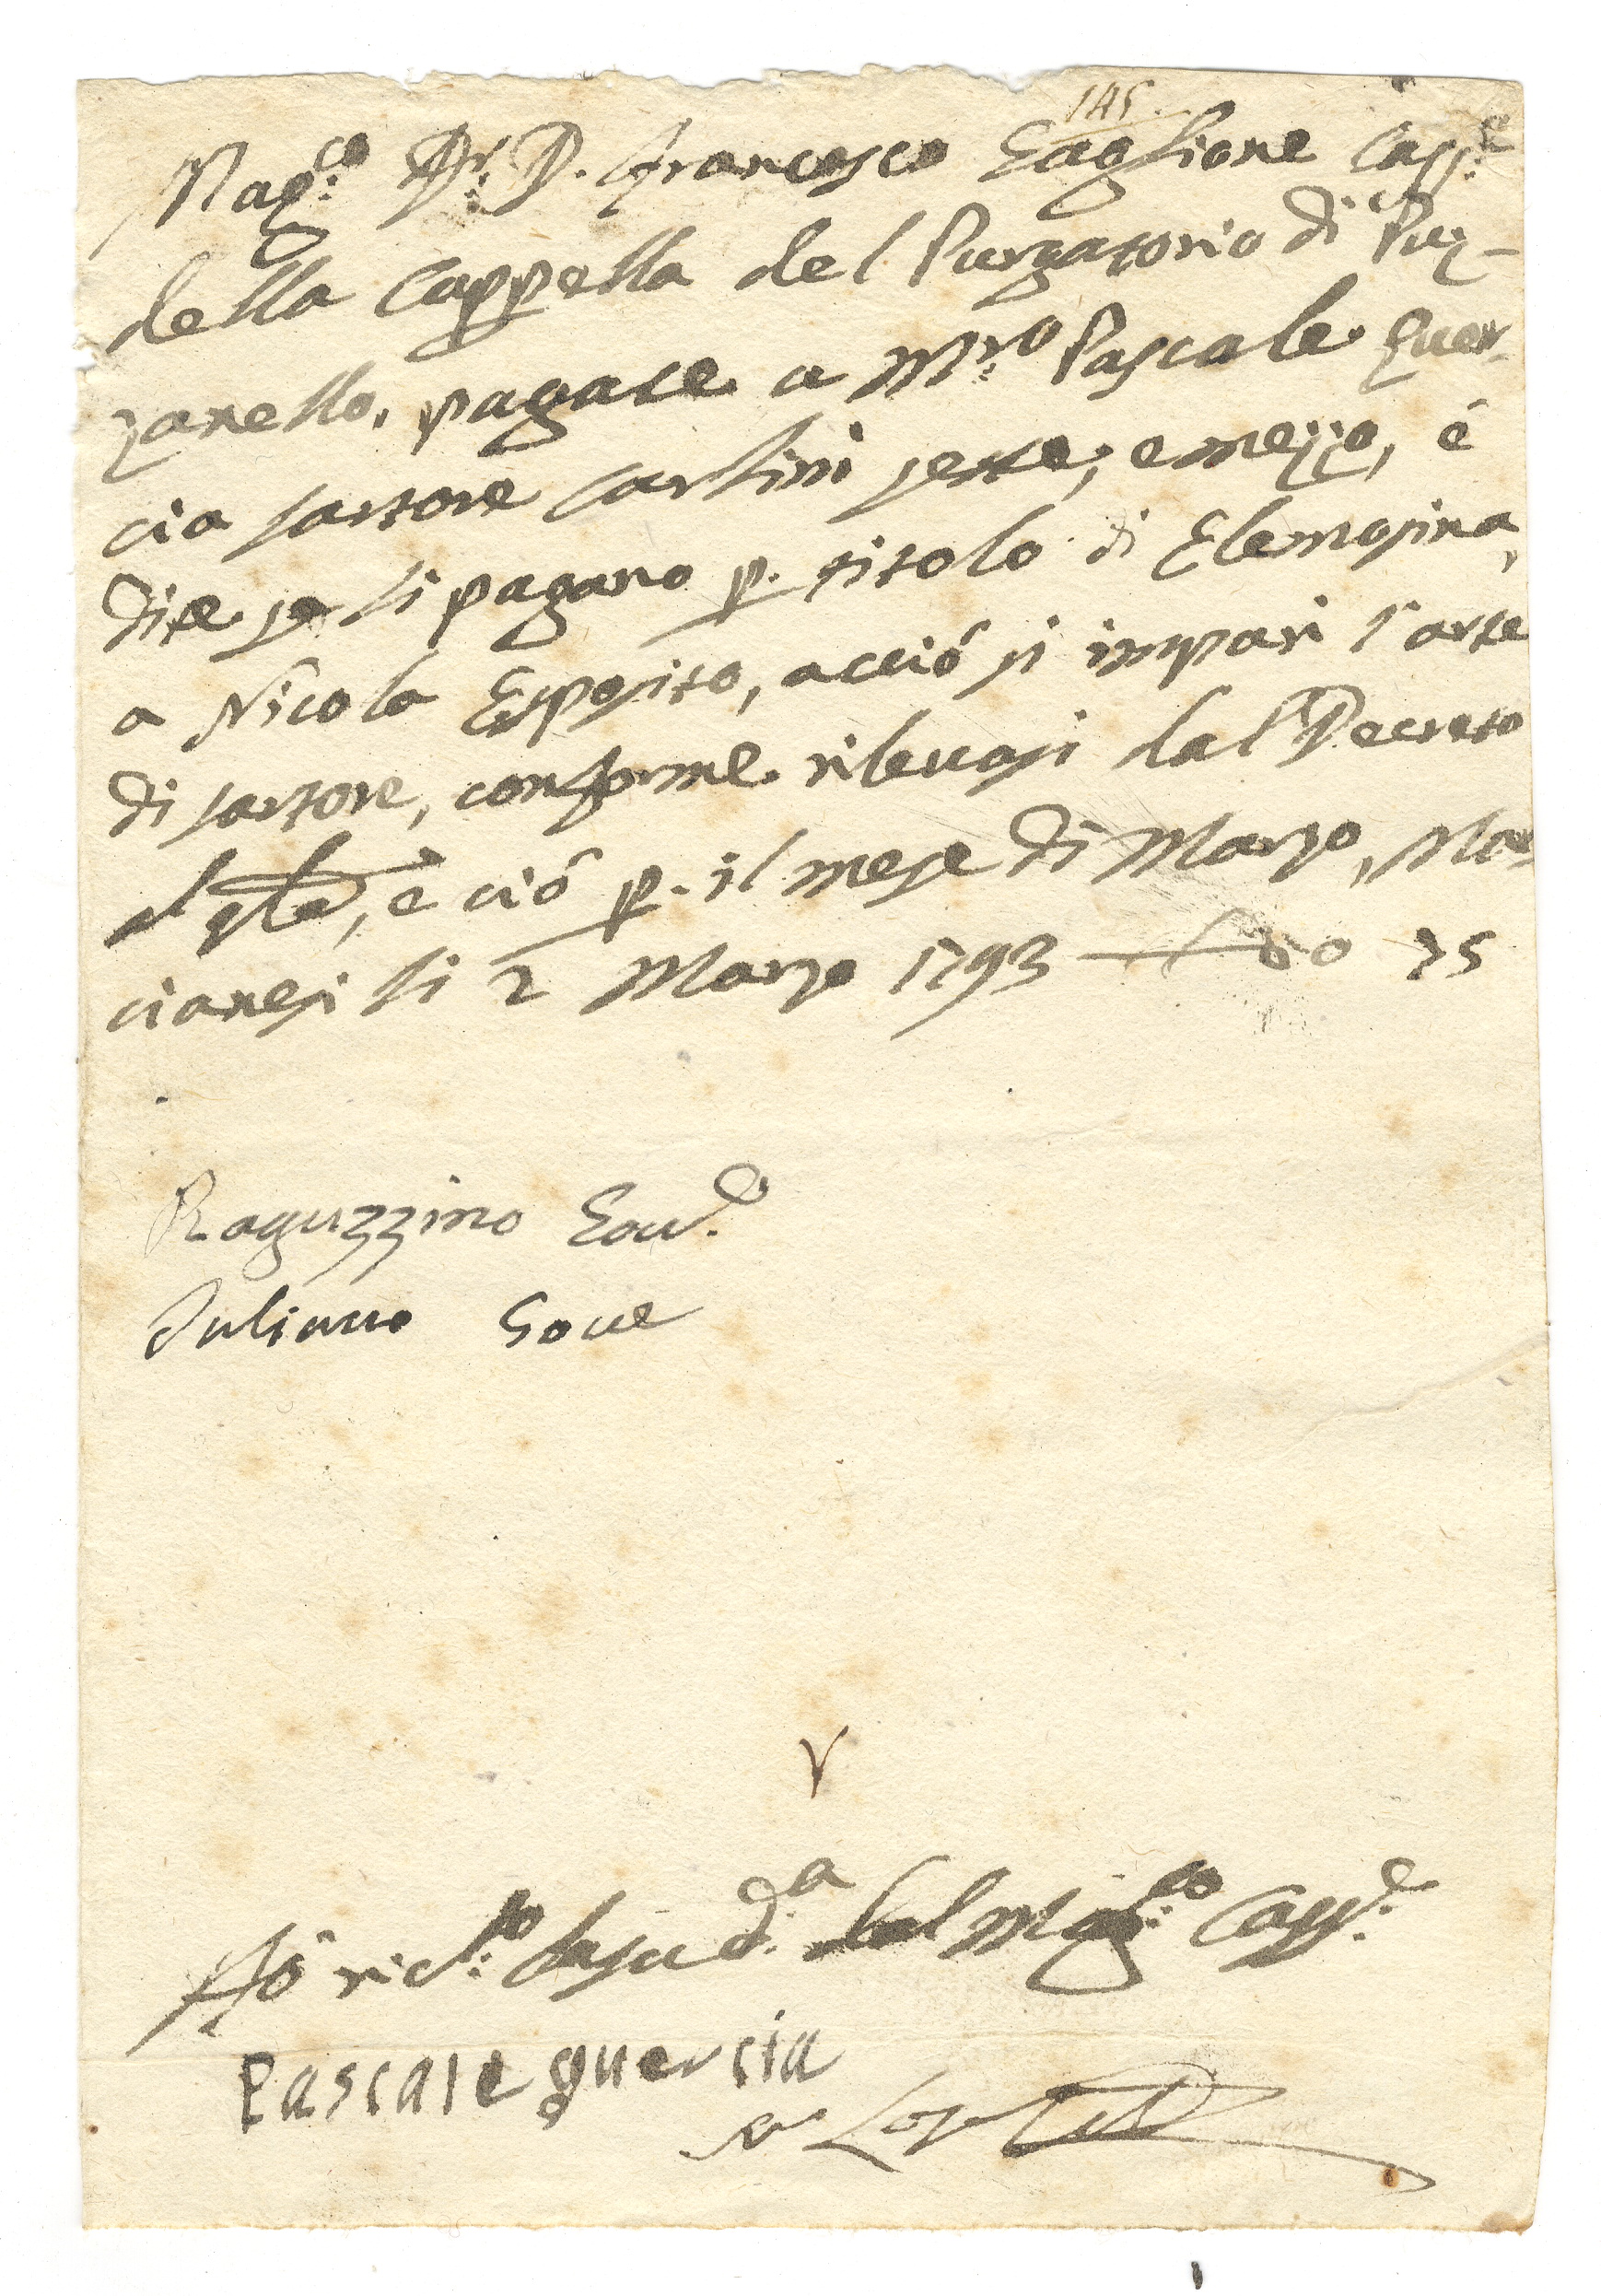 145.
Mag:co Dr: D. Francesco Taglione Cass:e
della Cappella del Purgatorio di Puz-
zanello, pagate a M:ro Pascale Quer-
cia sartore carlini sette, e mezzo, é
dite se li pagano p. titolo di Elemosina,
a Nicola Esposito, acció si impari l'arte
di sartore, conforme rilevasi dal Decreto
é ció p. il mese di Marzo, Mar
cianesi li 2 Marzo 1793 0 75
Raguzzino Gov.e
Juliano Gove
Hó ric:to la sud.a del Mag:co Cass.e
Pascale quercia